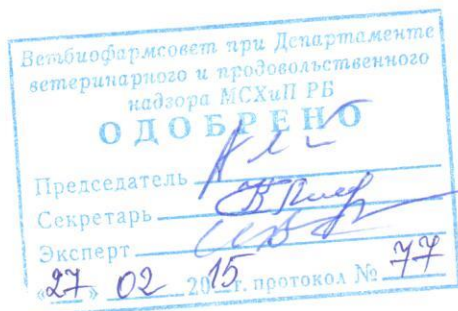 Ветбиофармсовет при Департаменте
ветеринарного и продовольственного
надзора МСХиП РБ
ОДОБРЕНО
Председатель
Секретарь
Эксперт
«27» 02 2015 г. протокол № 77